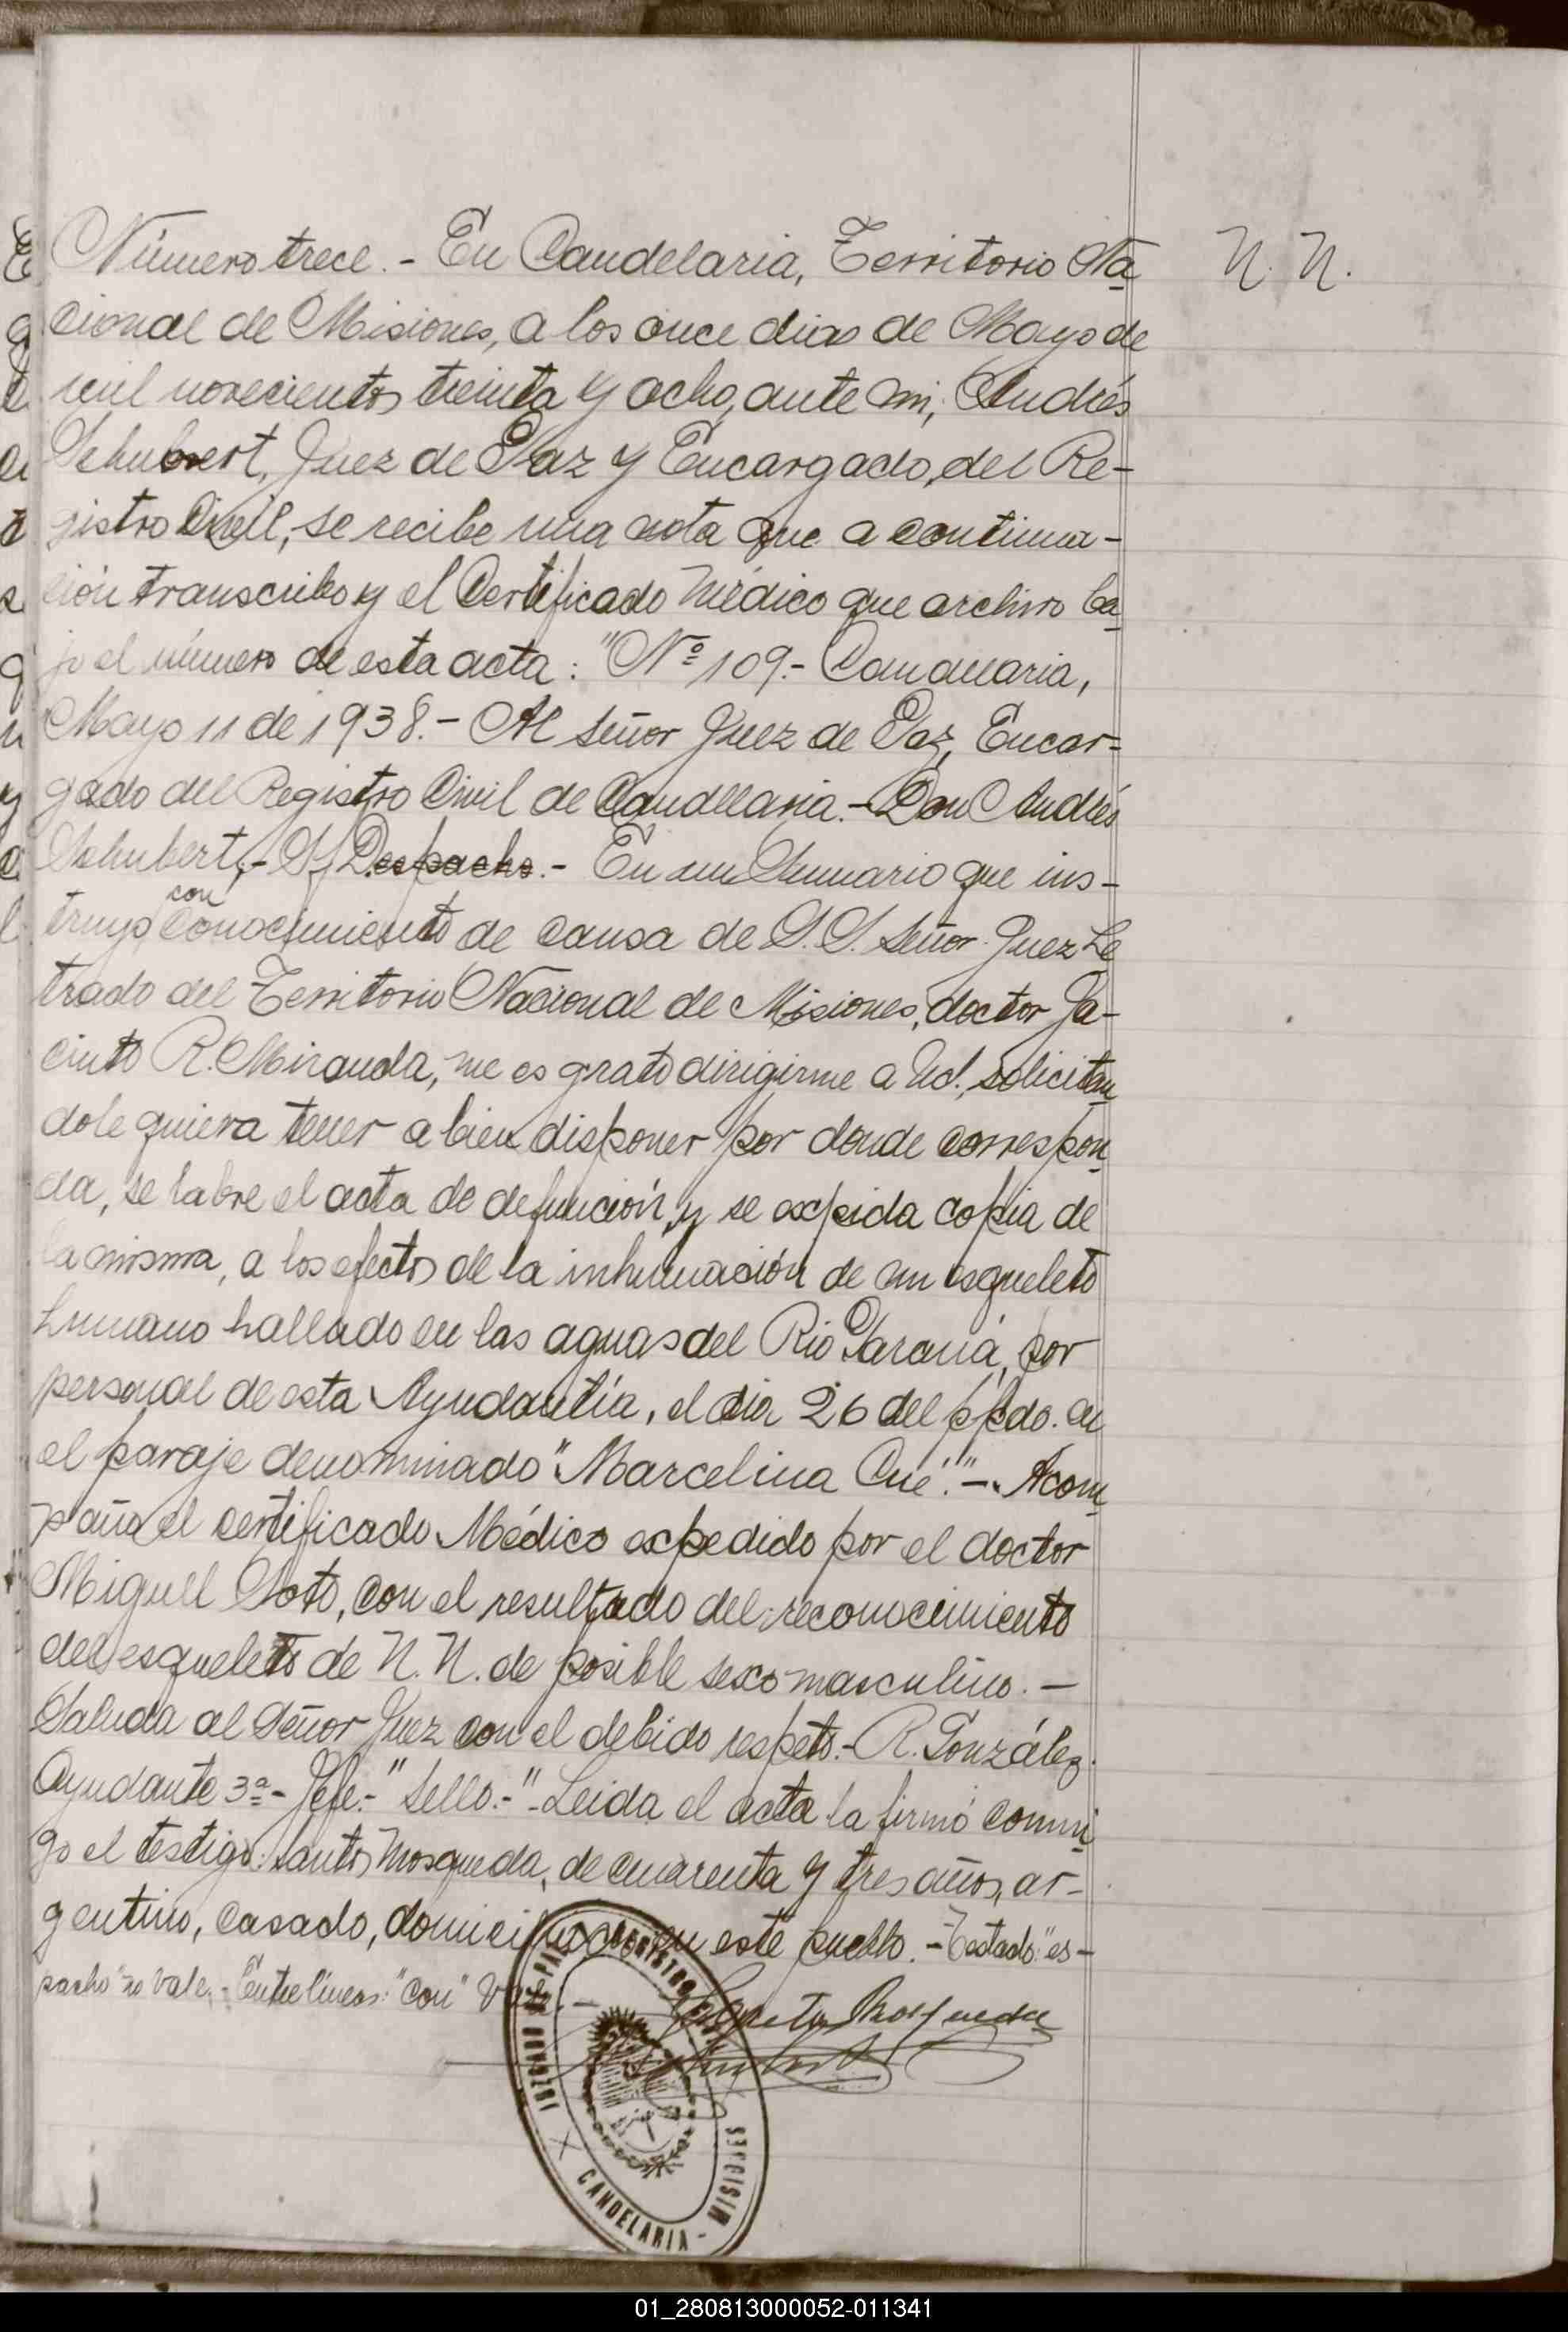 Número trece.- En Candelaria, Territorio Na
N. N.
cional de Misiones, a los once dias de Mayo de
mil novecientos treinta y ocho, ante mi, Andrés
Schubert, Juez de Paz y Encargado del Re-
gistro Civil, se recibe una nota que a continua-
ción transcribo y el Certificado Médico que archivo ba
jo el número de esta acta: "Nº 109.- Candelaria,
Mayo 11 de 1938.- Al Señor Juez de Paz, Encar-
gado del Registro Civil de Candelaria.- Don Andrés
Schubert,- S/ Despacho.- En un Sumario que ins-
con
truyo conocimiento de causa de S.S. Señor Juez Le
trado del Territorio Nacional de Misiones, doctor Ja-
cinto R. Miranda, me es grato dirigirme a Ud., solicitan
dole quiera tener a bien disponer por donde correspon
da, se labre el acta de defunción y se expida copia de
la misma, a los efectos de la inhumación de un esqueleto
humano hallado en las aguas del Rio Paraná, por
personal de esta Ayudantía, el dia 26 del ppdo. en
el paraje denominado "Marcelina Cué".- Acom
paña el certificado Médico expedido por el doctor
Miguel Soto, con el resultado del reconocimiento
del esqueleto de N. N. de posible sexo masculino.-
Saluda al Señor Juez con el debido respeto.- R. González.
Ayudante 3ª- Jefe.-" Sello.-" Leida el acta la firmó conmi
go el testigo: Santos Mosqueda, de cuarenta y tres años, ar-
gentino, casado, domiciliado en este pueblo.- Testado: "es-
pacho" no vale.- Entre líneas: "con" Vale.-
Santos Mosqueda
Schubert
JUZGADO DE PAZ REGISTRO CIVIL
CANDELARIA - MISIONES
01_280813000052-011341